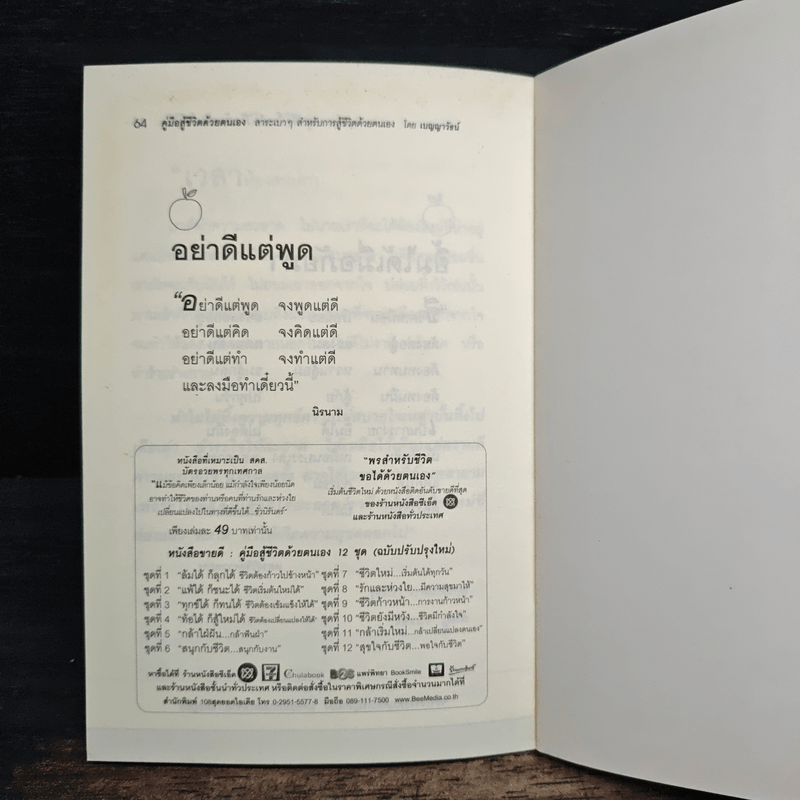 64 คู่มือสู้ชีวิตด้วยตนเอง สาระเบาๆ สำหรับการสู้ชีวิตด้วยตนเอง โดย เบญญารัตน์
อย่าดีแต่พูด
“อย่าดีแต่พูด จงพูดแต่ดี
อย่าดีแต่คิด จงคิดแต่ดี
อย่าดีแต่ทำ จงทำแต่ดี
และลงมือทำเดี๋ยวนี้”
นิรนาม
หนังสือที่เหมาะเป็น สคส.
บัตรอวยพรทุกเทศกาล
“แม้ข้อคิดเพียงเล็กน้อย แม้กำลังใจเพียงน้อยนิด
อาจทำให้ชีวิตของท่านหรือคนที่ท่านรักและห่วงใย
เปลี่ยนแปลงไปในทางที่ดีขึ้นได้...ชั่วนิรันดร์”
เพียงเล่มละ 49 บาทเท่านั้น
“พรสำหรับชีวิต
ขอได้ด้วยตนเอง”
เริ่มต้นชีวิตใหม่ ด้วยหนังสือติดอันดับขายดีที่สุด
ของร้านหนังสือซีเอ็ด
และร้านหนังสือทั่วประเทศ
หนังสือขายดี : คู่มือสู้ชีวิตด้วยตนเอง 12 ชุด (ฉบับปรับปรุงใหม่)
ชุดที่ 1 “ล้มได้ ก็ลุกได้ ชีวิตต้องก้าวไปข้างหน้า”
ชุดที่ 2 “แพ้ได้ ก็ชนะได้ ชีวิตเริ่มต้นใหม่ได้”
ชุดที่ 3 “ทุกข์ได้ ก็ทนได้ ชีวิตต้องเข้มแข็งให้ได้”
ชุดที่ 4 “ท้อได้ ก็สู้ใหม่ได้ ชีวิตต้องเปลี่ยนแปลงให้ได้”
ชุดที่ 5 “กล้าใฝ่ฝัน...กล้าฟันฝ่า”
ชุดที่ 6 “สนุกกับชีวิต...สนุกกับงาน”
ชุดที่ 7 “ชีวิตใหม่...เริ่มต้นได้ทุกวัน”
ชุดที่ 8 “รักและห่วงใย...มีความสุขมาให้”
ชุดที่ 9 “ชีวิตก้าวหน้า...การงานก้าวหน้า”
ชุดที่ 10 “ชีวิตยังมีหวัง...ชีวิตมีกำลังใจ”
ชุดที่ 11 “กล้าเริ่มใหม่...กล้าเปลี่ยนแปลงตนเอง”
ชุดที่ 12 “สุขใจกับชีวิต...พอใจกับชีวิต”
หาซื้อได้ที่ ร้านหนังสือซีเอ็ด Chulabook แพร่พิทยา BookSmile
และร้านหนังสือชั้นนำทั่วประเทศ หรือติดต่อสั่งซื้อในราคาพิเศษกรณีสั่งซื้อจำนวนมากได้ที่
สำนักพิมพ์ 108สุดยอดไอเดีย โทร 0-2951-5577-8 มือถือ 089-111-7500 www.BeeMedia.co.th